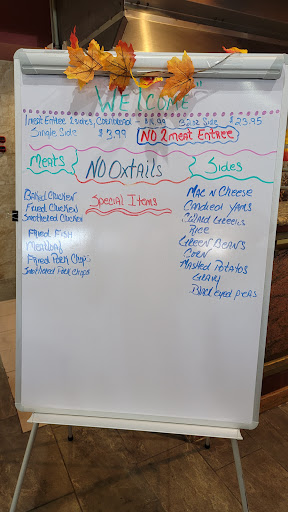 WELCOME"
1 meat Entree 2 sides, Cornbread $18.99 Extra Side $23.95
Single Side $3.99 NO 2 meat Entree
Meats NO Oxtails Sides
Special Items
Baked Chicken
Fried Chicken
Smothered Chicken
Fried Fish
Meatloaf
Fried Pork Chops
Smothered Pork Chops
Mac N Cheese
Candied Yams
Collard Greens
Rice
Green Beans
Corn
Mashed Potatos
Gravy
Black eyed peas